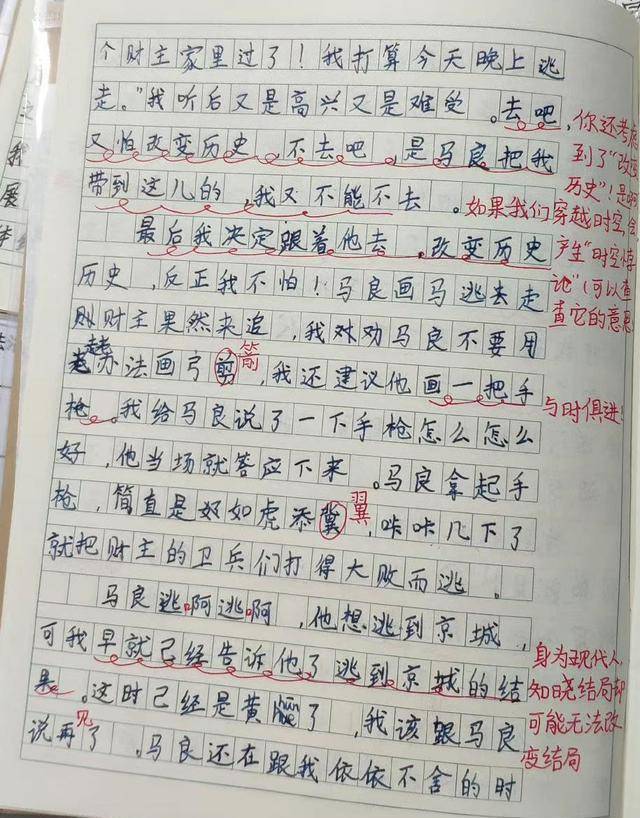 个财主家里过了！我打算今天晚上逃
走。"我听后又是高兴又是难受。去吧，
又怕改变历史，不去吧，是马良把我
带到这儿的，我又不能不去。
最后我决定跟着他去。改变历史
历史，反正我不怕！马良画马逃去走
则财主果然来追，我对劝马良不要用
办法画弓剪，我还建议他画一把手
枪。我给马良说了一下手枪怎么怎么
好，他当场就答应下来。马良拿起手
枪，简直是好如虎添冀，咔咔几下了
就把财主的卫兵们打得大败而逃。
马良逃啊逃啊，他想逃到京城，
可我早就已经告诉他了逃到京城的结
果。这时已经是黄hūn了，我该跟马良
说再见了。马良还在跟我依依不舍的时
你还考虑
到了"改变
历史"！是
如果我们穿越时空，会
产生"时空悖
论"(可以查
查它的意思
箭
与时俱进！
翼
身为现代人，
知晓结局却
可能无法改
变结局